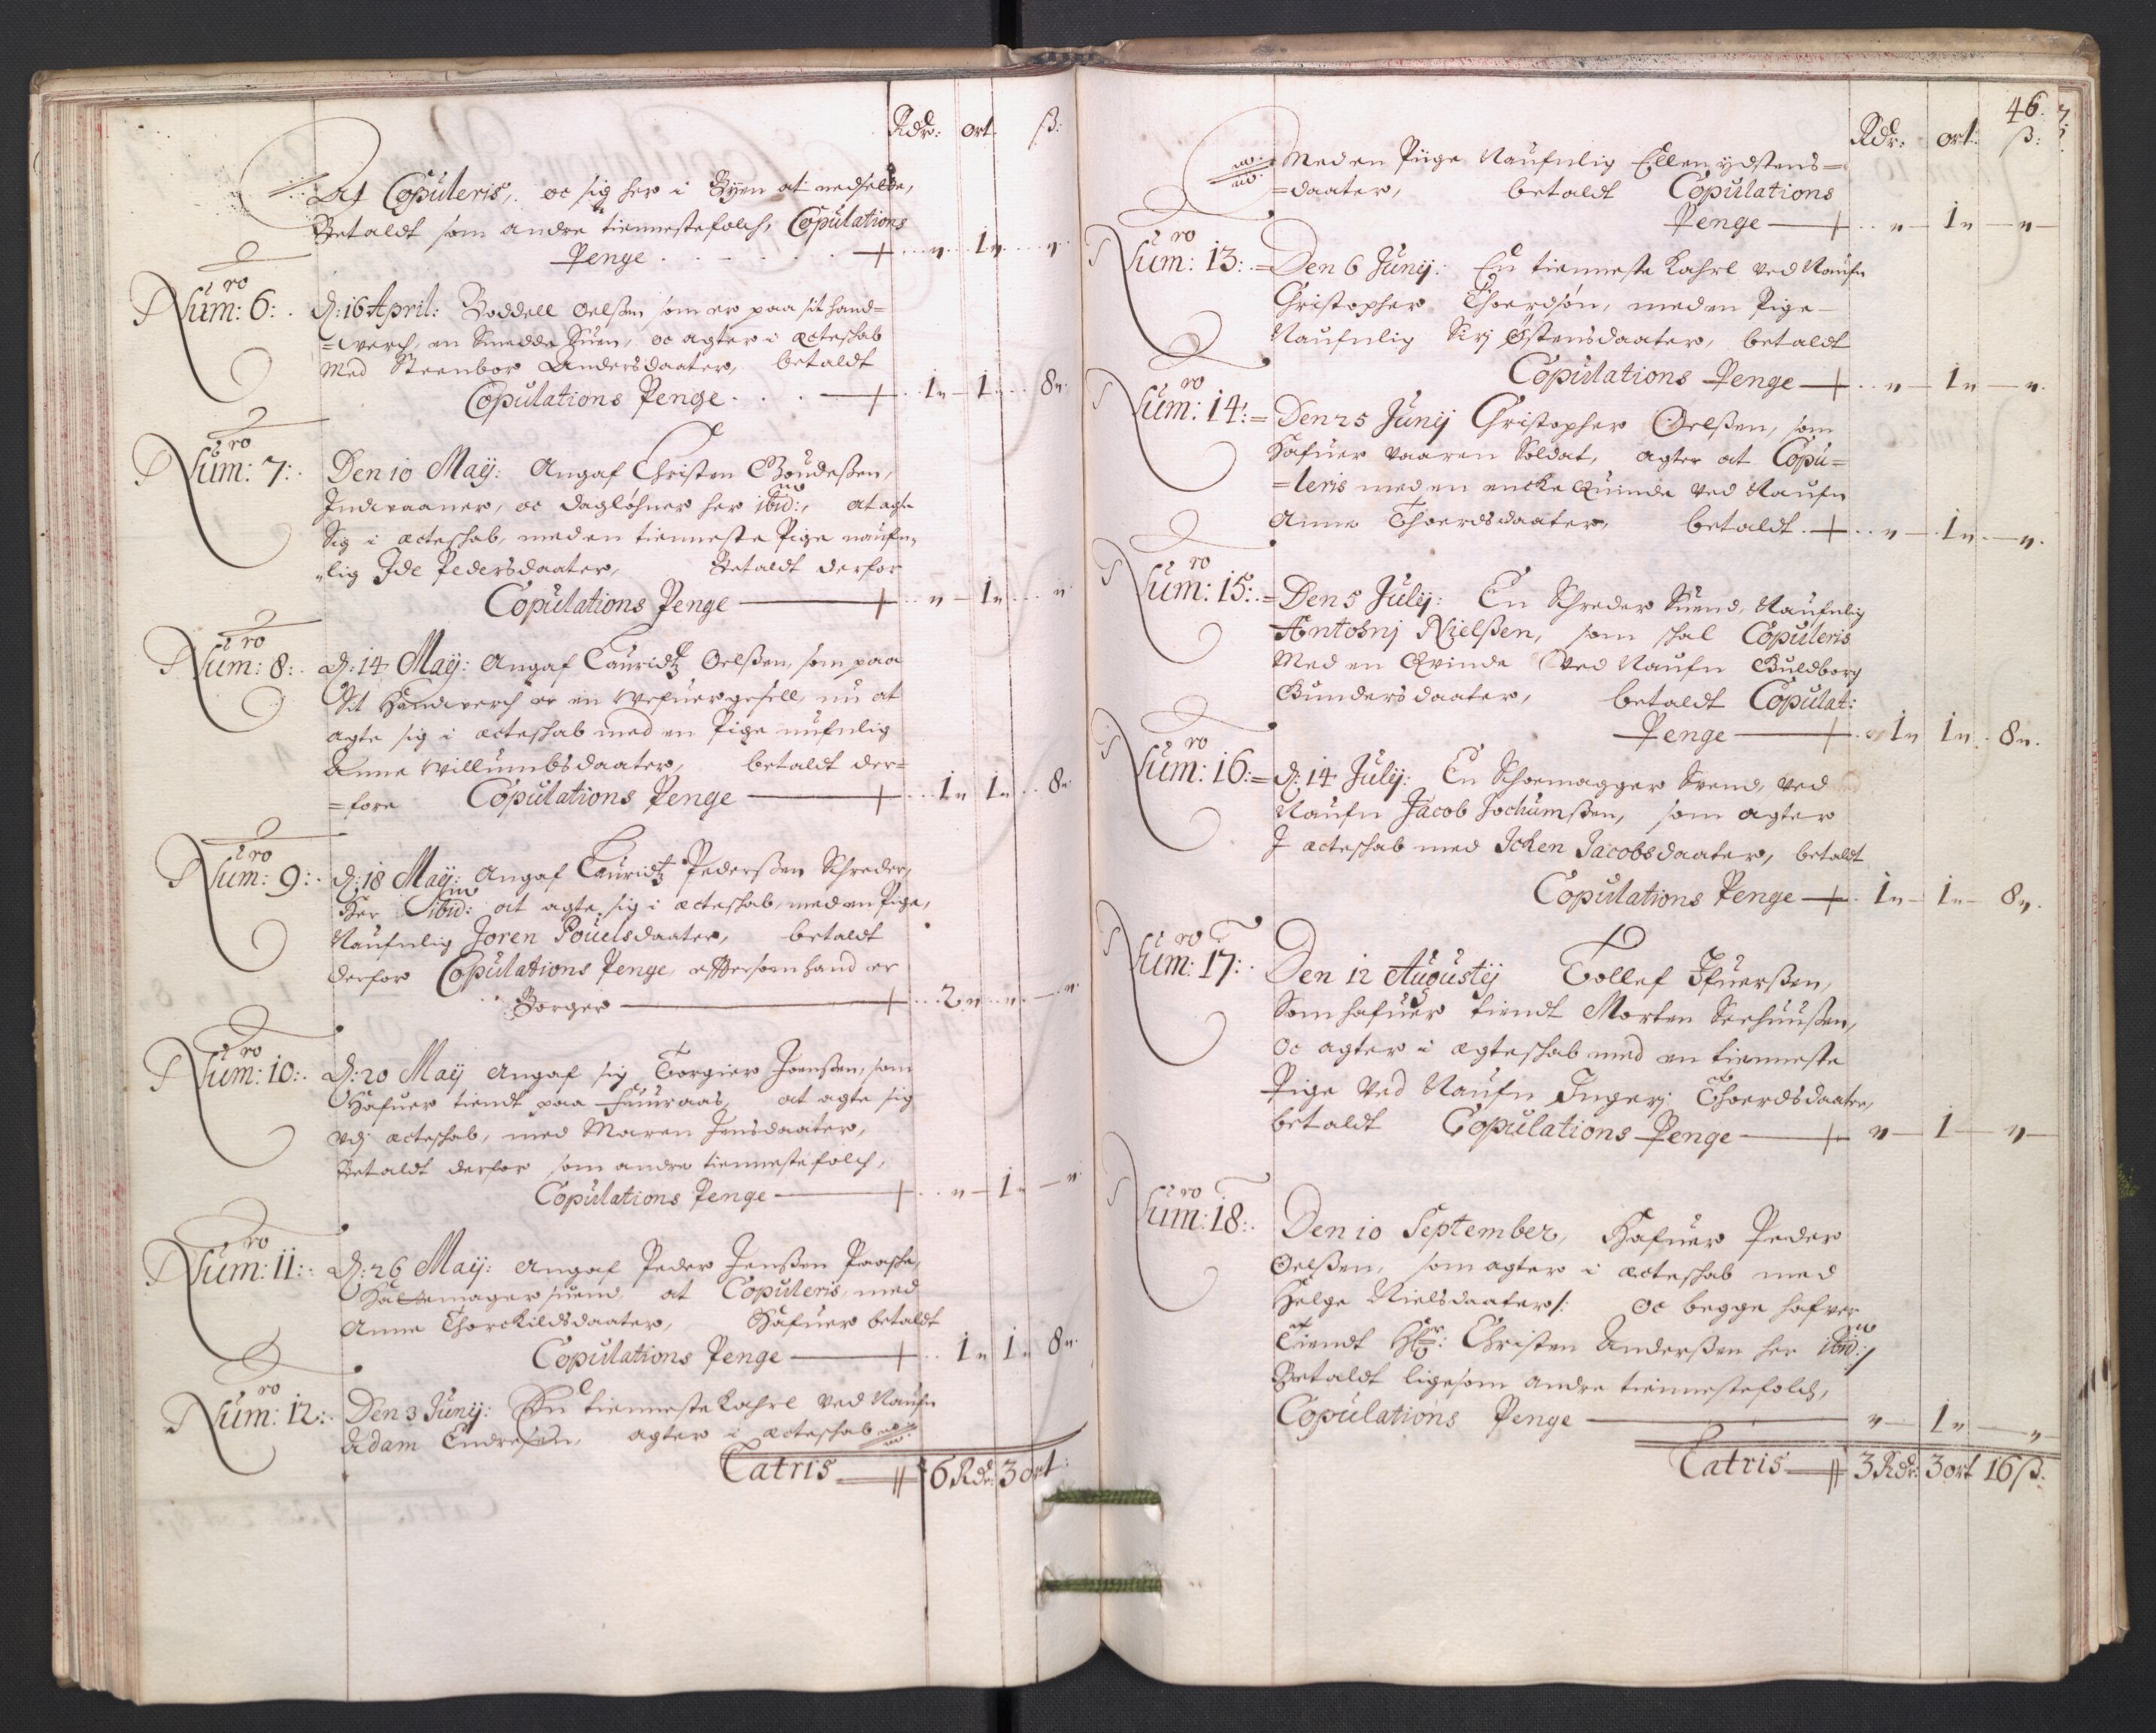 Rdr: ort ß:
At Copuleris, oc sig her i Byen at nedsette,
Betaldt som andre tiennestefolch, Copulations
Penge . . . . + " 1 " "
Num:ro 6: d: 16 April: Boddell Oelßen som er paa sit hand=
=werch, en Smedde Suen, oc agter i ecteschab
med Steenbor Andersdaater, betaldt
Copulations Penge . . . + 1 " 1 8 "
Num:ro 7: Den 10 Maij: Angaf Christen Goudeßen,
Indwaaner, oc daglöhner her ibid:, at agte
Sig i ecteschab, med en tienneste Pige naufn„
„lig Ide Pedersdaater, Betaldt derfor
Copulations Penge + " 1 " "
Num:ro 8: d: 14 Maij: Angaf Lauridtz Oelßen, som paa
Sit Handwerch er en Wefuergesell, nu at
agte sig i ecteschab med en Pige nufnlig
Anne Willumbsdaater, betaldt der=
=fore Copulations Penge + 1 " 1 " 8 "
Num:ro 9: d: 18 Maij: Angaf Lauridtz Pederßen Schreder,
Her ibid: at agte sig i ecteschab, med en Pige,
Naufnlig Joren Pouelsdaater, betaldt
derfor Copulations Penge, effterson hand er
Borger + 2 " " "
Num:ro 10: d: 20 Maij Angaf sig Torgier Joenßen, som
Hafuer tiendt paa Fuuraas, at agte sig
vdj ecteschab, med Maren Jensdaater,
Betaldt derfor som andre tiennestefolch,
Copulations Penge + " 1 " "
Num:ro 11: d: 26 Maij: Angaf Peder Jenßen Paaske,
Hattemager suend at Copuleris, med
Anne Thorckildsdaater, Hafuer betaldt
Copulations Penge + 1 " 1 " 8 "
Num:ro 12: Den 3 Junij: En tienneste Kahrl ved Naufn
Adam Endresen, agter i ecteschab
Latris 6 Rdr: 3 ort:
46
Rdr: ort: ß:
Med en Piige Naufnlig Ellen ydstens=
=daater, betaldt Copulations
Penge + " 1 " "
Num:ro 13: = Den 6 Junij: En tienneste Kahrl ved Naufn
Christopher Thoerdsön, med en Pige
Naufnlig Sirj Östensdaater, betaldt
Copulations Penge + " 1 " "
Num:ro 14: = Den 25 Junij Christopher Oelßen, som
Hafuer vaaren Soldat, agter at Copu=
=leris med en encke Quinde ved Naufn
Anne Thoerdsdaater, betaldt . + " 1 " "
Num:ro 15: = Den 5 Julij: En Schreder Suend, Naufnlig
Antohnj Nielßen, som skal Copuleris
Med en Qvinde ved Naufn Guldborg
Gundersdaater, betaldt Copulat:
Penge + 1 " 1 " 8 "
Num:ro 16: = d: 14 Julij: En Schoemagger Svend, ved
Naufn Jacob Jochumßen, som agter
J ecteschab med Icken Jacobsdaater, betaldt
Copulations Penge + 1 " 1 " 8 "
Num:ro 17: Den 12 Augustij Tollef Ifuerßen,
Som hafuer tiendt Morten Seehuußen,
oc agter i egteschab med en tienneste
Pige ved Naufn Ingerj Thoerdsdaater,
betaldt Copulations Penge + " 1 "
Num:ro 18: Den 10 September, Hafuer Peder
Oelßen, som agter i ecteschab med
Helge Nielsdaater /: oc begge hafver
Tiendt Hr: Christen Anderßen her ibid: /
Betaldt ligesom andre tiennestefolch,
Copulations Penge " 1 " "
Latris 3 Rdr: 3 ort 16 ß: